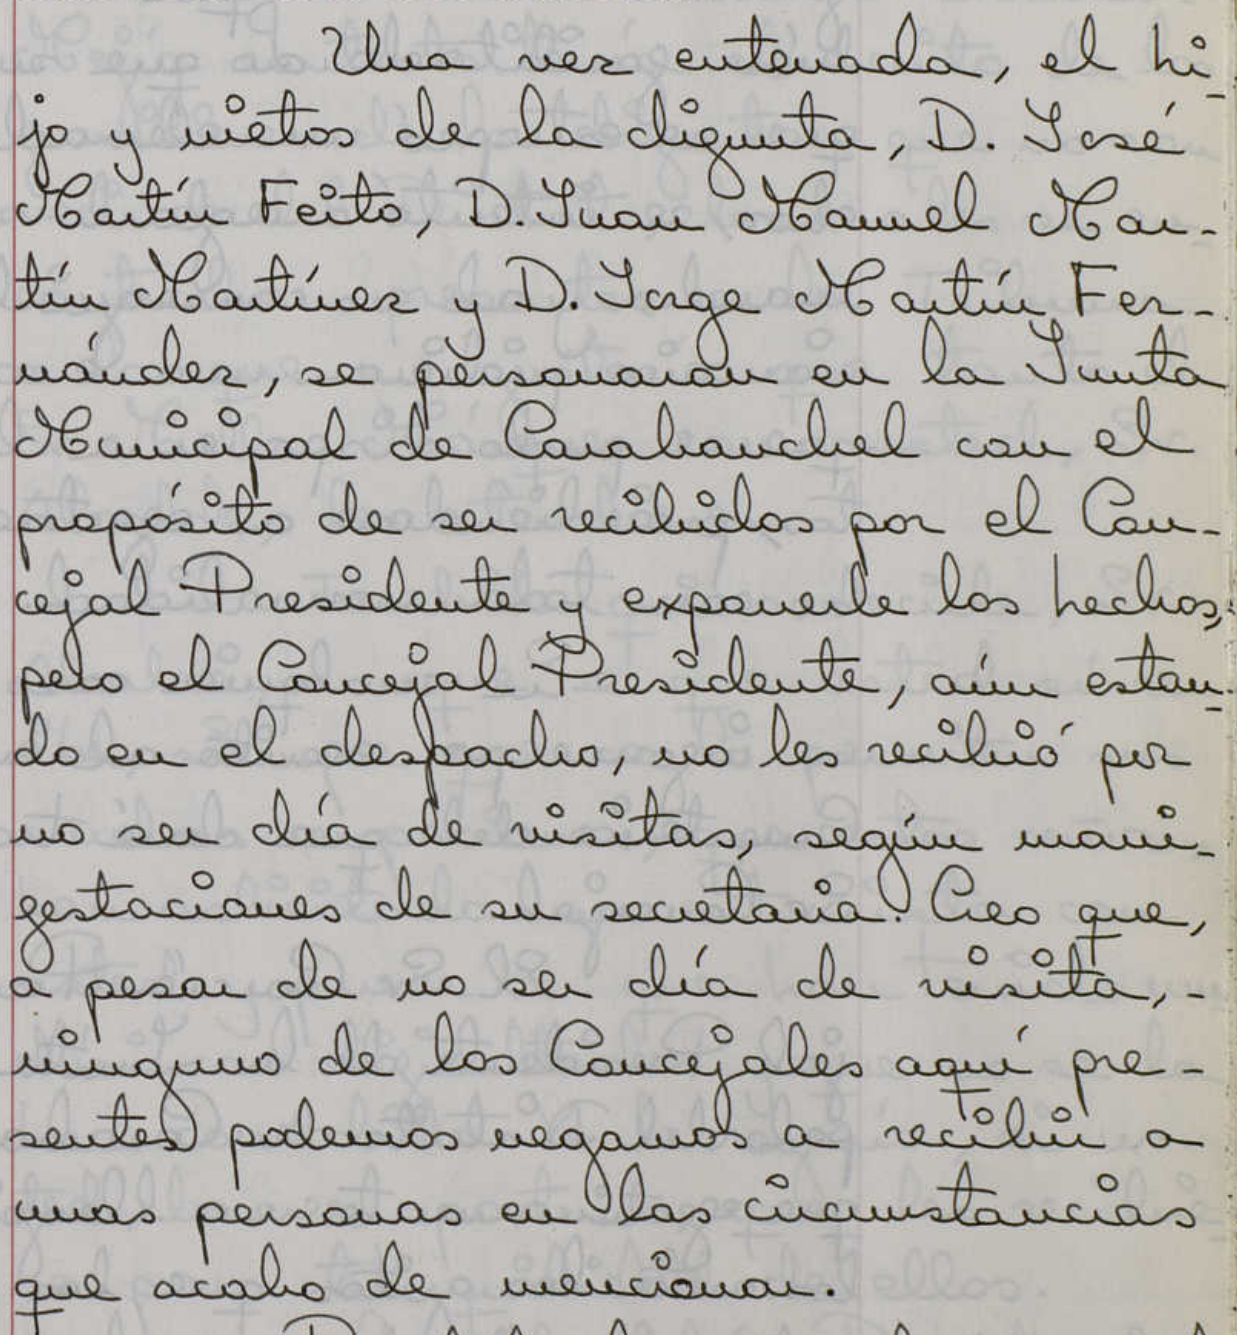 Una vez enterrada, el hi-
jo y nietos de la difunta, D. José
Martín Feito, D. Juan Manuel Mar-
tín Martínez y D. Jorge Martín Fer-
nández, se personaron en la Junta
Municipal de Carabanchel con el
propósito de ser recibidos por el Con-
cejal Presidente y exponerle los hechos,
pero el Concejal Presidente, aún estan-
do en el despacho, no les recibió por
no ser día de visitas, según mani-
festaciones de su secretaria. Creo que,
a pesar de no ser día de visita, -
ninguno de los Concejales aquí pre-
sentes podemos negarnos a recibir a
unas personas en las circunstancias
que acabo de mencionar.